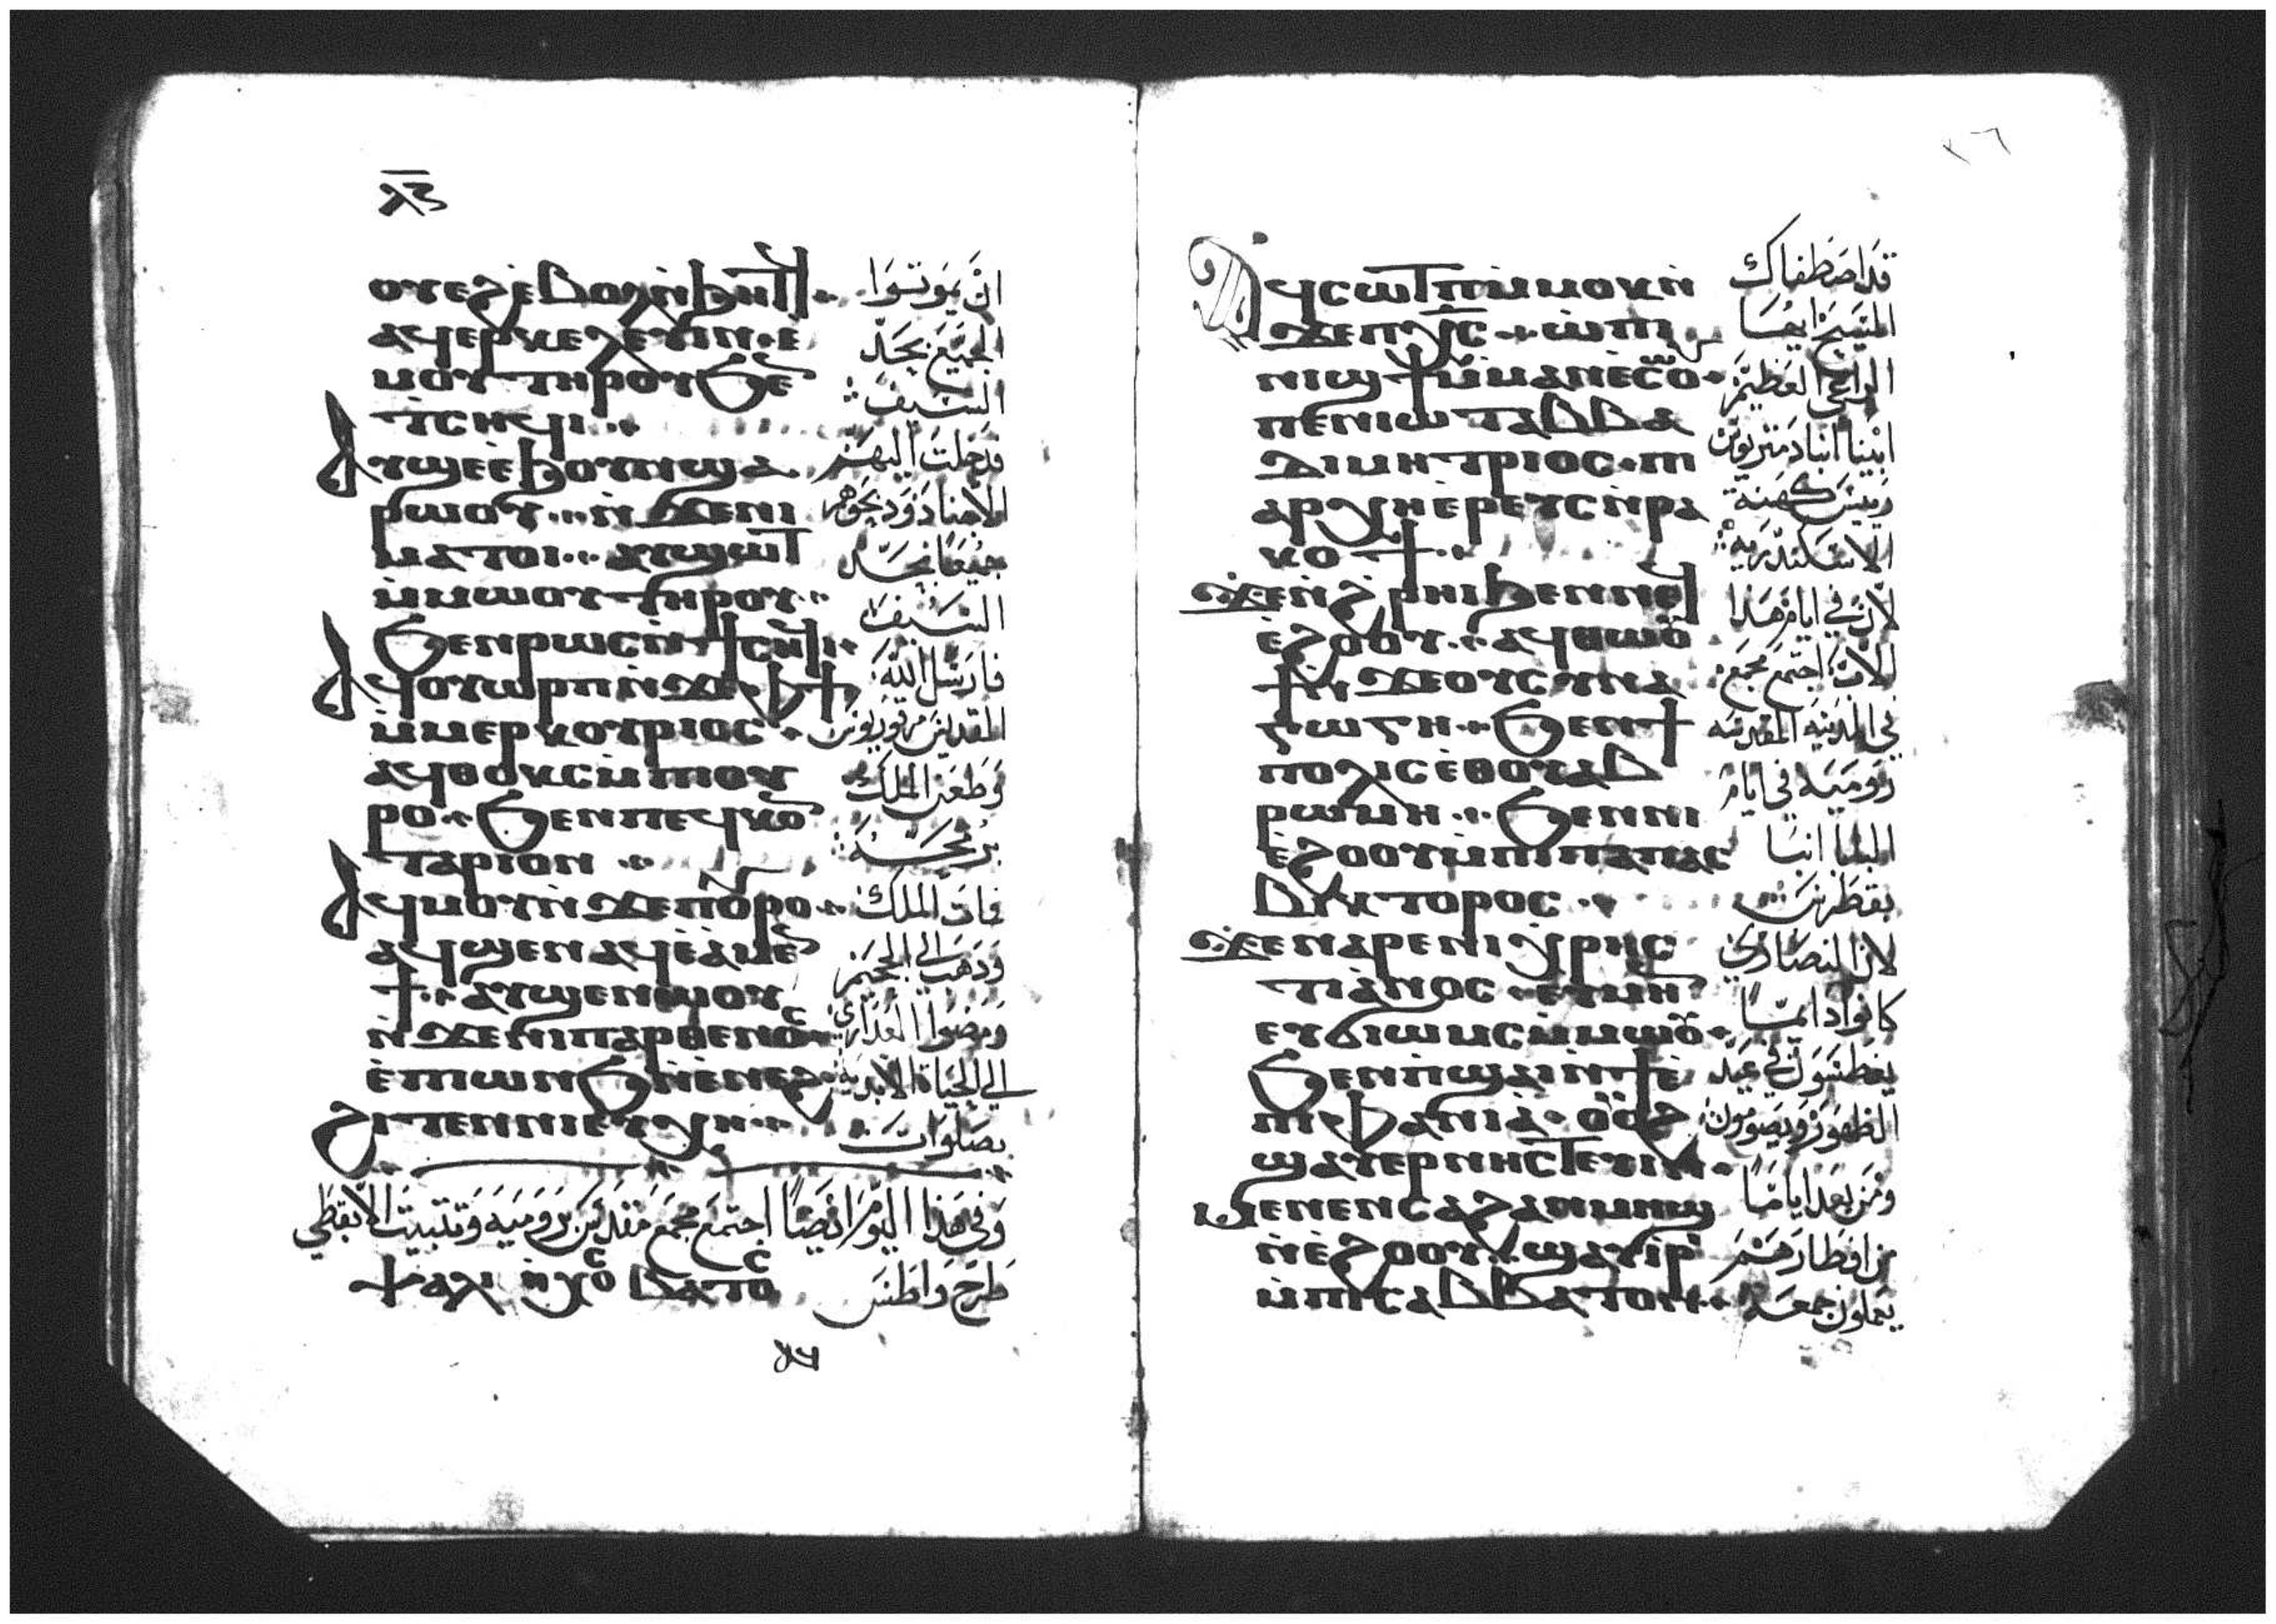 ⲗⲋ
ⲟⲩⲉϩⲉ̀ⲃⲟⲗⲛ̀ϧⲏⲧ
ⲁϥⲉⲣⲕⲉⲗⲉⲩⲓⲛ ⲉ̀
ⲙⲟⲩ ⲧⲏⲣⲟⲩ ϧⲉ
ⲧⲥⲏϥⲓ
ⲁⲩϣⲉⲉ̀ϧⲟⲩⲛϣⲁ
ⲣⲱⲟⲩ ⲛ̀ϫⲉⲛⲓ
ⲙⲁⲧⲟⲓ ⲁⲩϣⲱⲧ
ⲙ̀ⲙⲱⲟⲩ ⲧⲏⲣⲟⲩ
ϧⲉⲛⲣⲱⲥⲛ̀ⲧⲥⲏϥⲓ
ⲁϥⲟⲩⲱⲣⲡⲛ̀ϫⲉⲫϯ
ⲙ̀ⲙⲉⲣⲕⲟⲩⲣⲓⲟⲥ
ⲁϥⲑⲟⲩⲕⲥⲙ̀ⲡⲓⲟⲩ
ⲣⲟ ϧⲉⲛⲡⲉϥⲕⲟ
ⲧⲁⲣⲓⲟⲛ
ⲁϥⲙⲟⲩⲛ̀ϫⲉⲡⲟⲣⲟ
ⲁϥϣⲉⲛⲁϥⲉ̀ⲁⲙⲉ
ϯ ⲁⲩϣⲉⲛⲱⲟⲩ
ⲛ̀ϫⲉⲛⲓⲡⲁⲣⲑⲉⲛⲟⲥ
ⲉ̀ⲡⲓⲱⲛϧⲛ̀ⲉⲛⲉϩ
ϩⲓⲧⲉⲛⲛⲓⲉⲩⲭⲏ
ان يموتوا
الجميع بحد
السيف
فدخلت اليهم
الاجناد وذبحوهم
جميعا بحد
السيف
فارسل الله
القديس مرقوريوس
وطعن الملك
بحربته
فمات الملك
وذهب الي الجحيم
ومضوا العذاري
الي الحياة الابدية
بصلوات
وفي هذا اليوم ايضا اجتمع مجمع مقدس برومية وتثبيت الابقطي
ⲯⲁⲗⲓ ⲛ̀ⲭⲟⲥ ⲃⲁⲧⲟⲥ طرح واطس
ⲁϥ
٣٦
ⲁϥⲥⲱⲧⲡⲙ̀ⲙⲟⲕⲛ̀
ϫⲉⲡⲭⲥ ⲱ̀ⲡⲓ
ⲛⲓϣϯⲙ̀ⲙⲁⲛⲉⲥⲟ
ⲡⲉⲛⲓⲱⲧⲁⲃⲃⲁ
ⲇⲓⲙⲏⲧⲣⲓⲟⲥ ⲡⲓ
ⲁⲣⲭⲏⲉ̀ⲣⲉⲩⲥⲛ̀ⲣⲁ
ⲕⲟϯ
ϫⲉⲛ̀ϩⲣⲏⲓϧⲉⲛⲛⲉ
ⲉ̀ϩⲟⲟⲩ ⲁϥⲑⲱⲟⲩ
ϯⲛ̀ϫⲉⲟⲩⲥⲩⲛⲁ
ⲅⲱⲅⲏ ϧⲉⲛϯ
ⲡⲟⲗⲓⲥⲉ̀ⲑⲟⲩⲁⲃ
ⲣⲱⲙⲏ ϧⲉⲛⲛⲓ
ⲉ̀ϩⲟⲟⲩⲙ̀ⲡⲓⲡⲁⲡⲁⲥ
ⲃⲓⲕⲧⲟⲣⲟⲥ
ϫⲉⲛⲁⲣⲉⲛⲓⲭⲣⲏⲥ
ⲧⲓⲁⲛⲟⲥ ⲉⲩⲙⲏⲛ
ⲉⲩϭⲓⲱⲙⲥⲙ̀ⲙⲱⲟⲩ
ϧⲉⲛⲡϣⲁⲓⲛ̀ⲧⲉ
ⲡⲓⲫⲁⲛⲓⲁ ⲟⲩⲟϩ
ϣⲁⲩⲉⲣⲛⲏⲥⲧⲉⲩⲓⲛ
ⲙⲉⲛⲉⲛⲥⲁϩⲁⲛⲙⲏϣ
ⲛ̀ⲉ̀ϩⲟⲟⲩ ϣⲁⲩⲓⲣⲓ
ⲙ̀ⲡⲓⲥⲁⲃⲃⲁⲧⲟⲛ
قد اصطفاك
المسيح ايها
الراعي العظيم
ابينا انبا دمتريوس
رييس كهنة
الاسكندرية
لان في ايام هذا
الاب اجتمع مجمع
في المدينة المقدسة
رومية في ايام
البابا انبا
بقطر
لان النصاري
كانوا دايما
يغطسون في عيد
الظهور ويصومون
ومن بعد اياما
من افطارهم
يعملون جمعة